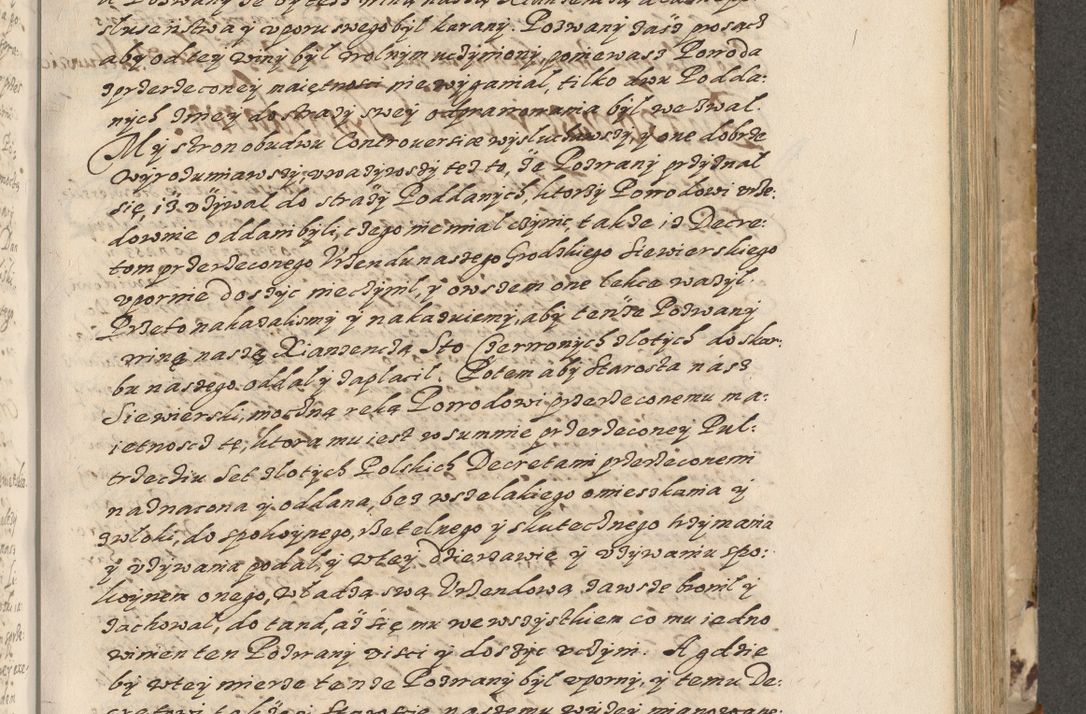 słuszeństwa y uporu swego był karany. Pozwany zaś prosząc
aby od tey winy był wolnym uczyniony, ponieważ Powoda
z przerzeconey maiętności nie wyganiał, tilko dwu Podda:
nych z niey do straży swey odprawowania był wezwał.
My stron obudwu Controversia wysłuchawszy, y one dobrze
wyrozumiawszy, uważywszy też to, że Pozwany przyznał
się, iż używał do straży Poddanych, ktorzy Powodowi urzę:
downie oddani byli, czego nie miał czynić, także iż Decre:
tom przerzeconego Urzendu naszego Grodzkiego Siewierskiego
upornie dosyc nieczynił, y owszem one lekce ważył.
Przeto nakazalismy y nakazuiemy, aby tenże Pozwany
winę naszę Xiąnzencią Sto Czerwonych złotych do skar:
bu naszego oddał y zapłacił. Potem aby Starosta nász
Siewierski, mocżną ręką Powodowi przerzeconemu ma:
ietnosc tę, ktora mu iest w summie przerzeconey Puł:
trzeciu set złotych Polskich Decretami przerzeconemi
naznaczona y oddana, bez wszelakiego omieszkania y
zwłoki, do spokoynego, rzetelnego y skutecznego trzymania
y używania podał, y w tey dzierzawie y używaniu spo:
koynem onego, władzą swą Urzendową zawsze bronił y
zachował, do tand, aż się mu we wszystkiem co mu iedno
winien ten Pozwany uisci y dosyc uczyni. A gdzie
by w tey mierze tenże Pozwany był uporny, y temu De: